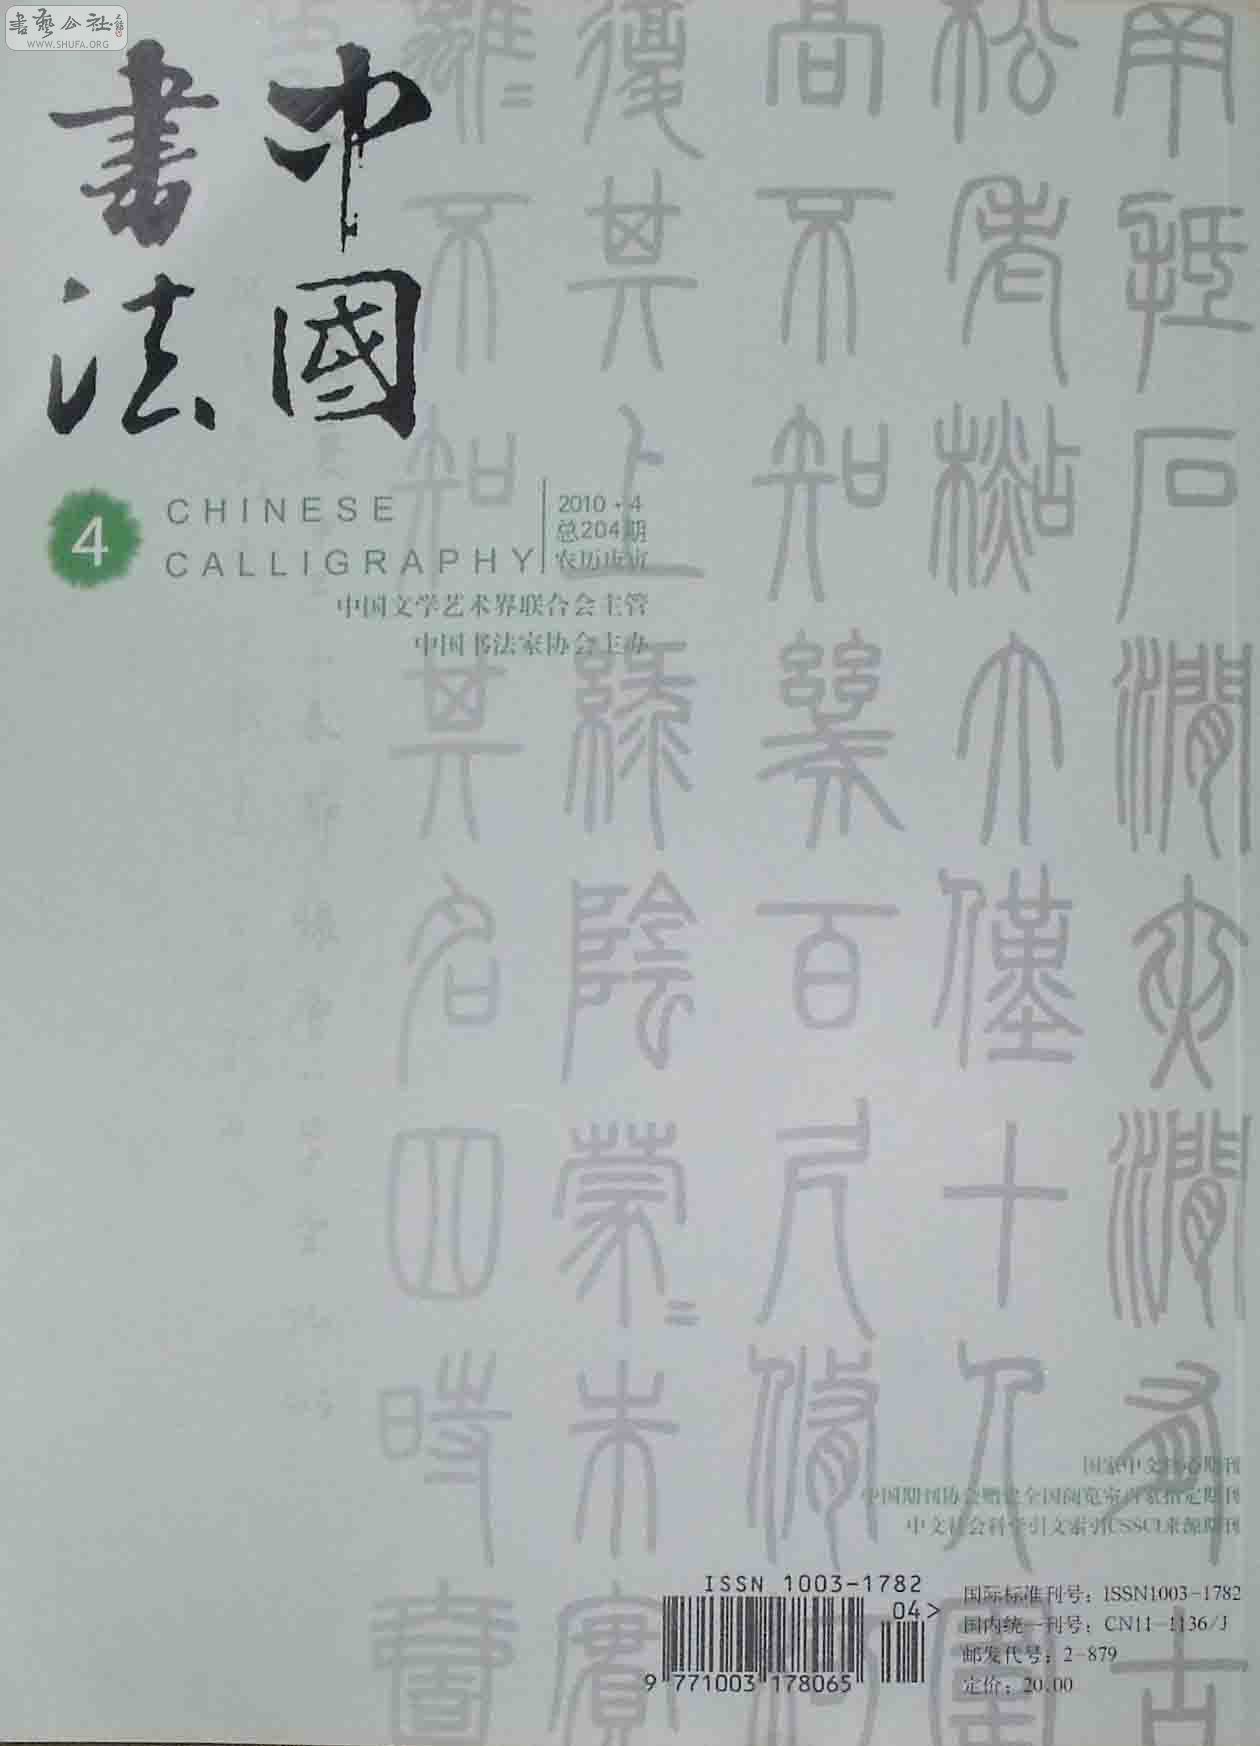 書藝公社
WWW.SHUFA.ORG
中國
書法
4
CHINESE
CALLIGRAPHY
2010·4
总204期
农历庚寅
中国文学艺术界联合会主管
中国书法家协会主办
用抵石澗夾澗有古
松老檆大僅十人圍
高不知幾百尺脩柯
復其上緑陰蒙=未實
離=不知其名四時
国家中文核心期刊
中国期刊协会赠送全国阅览室百家指定期刊
中文社会科学引文索引CSSCI来源期刊
ISSN 1003-1782
04>
9 771003 178065
国际标准刊号：ISSN1003-1782
国内统一刊号：CN11-1136/J
邮发代号：2-879
定价：20.00